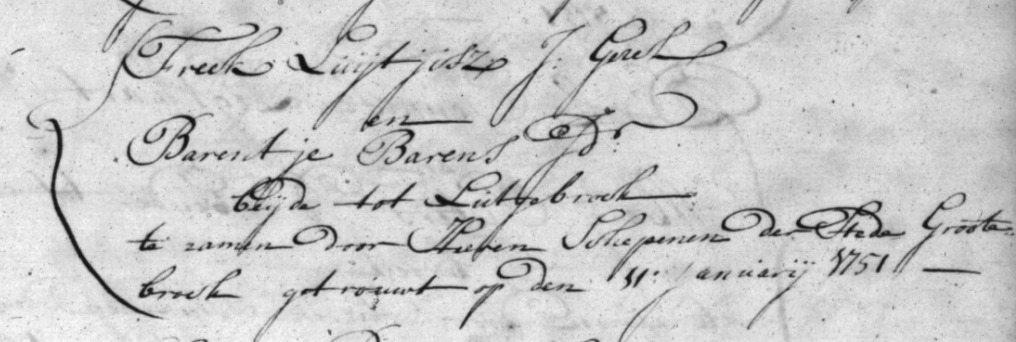 Freek Luijtjisz J: Gesel
en
Barentje Barens Jdr
beijde tot Lutgebroek
te zamen door Heeren Schepenen der Stede Groote-
broek getrouwt op den 11: Januarij 1751 —